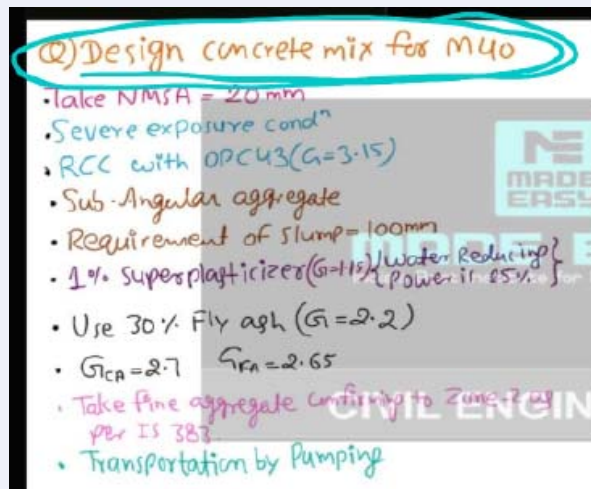 Q) Design concrete mix for M40
• Take NMSA = 20mm
• Severe exposure condⁿ
• RCC with OPC43 (G=3.15)
• Sub-Angular aggregate
• Requirement of slump = 100mm
• 1% superplasticizer (G=1.15) {Water Reducing
Power is 25%}
• Use 30% Fly ash (G=2.2)
• G_CA = 2.7 G_FA = 2.65
• Take fine aggregate confirming to Zone-2 as
per IS 383
• Transportation by Pumping
MADE
EASY
CIVIL ENGIN